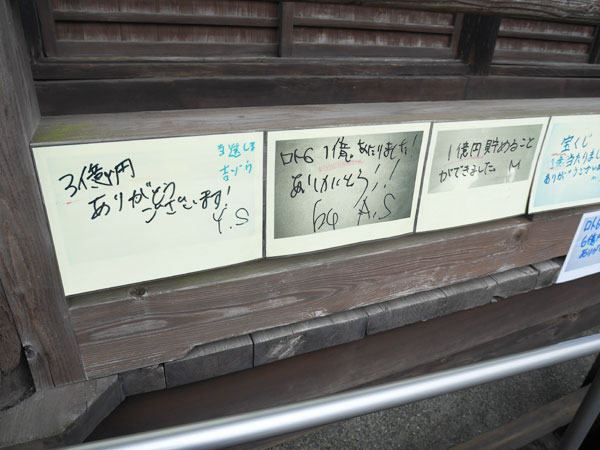 3億円
ありがとう
ございます!
Y.S
ロト6 1億あたりました!
ありがとう!!
64 A.S
1億円貯めること
ができました。 M
宝くじ
当たりまし
ありがとうござい
ロト6
6億
あり